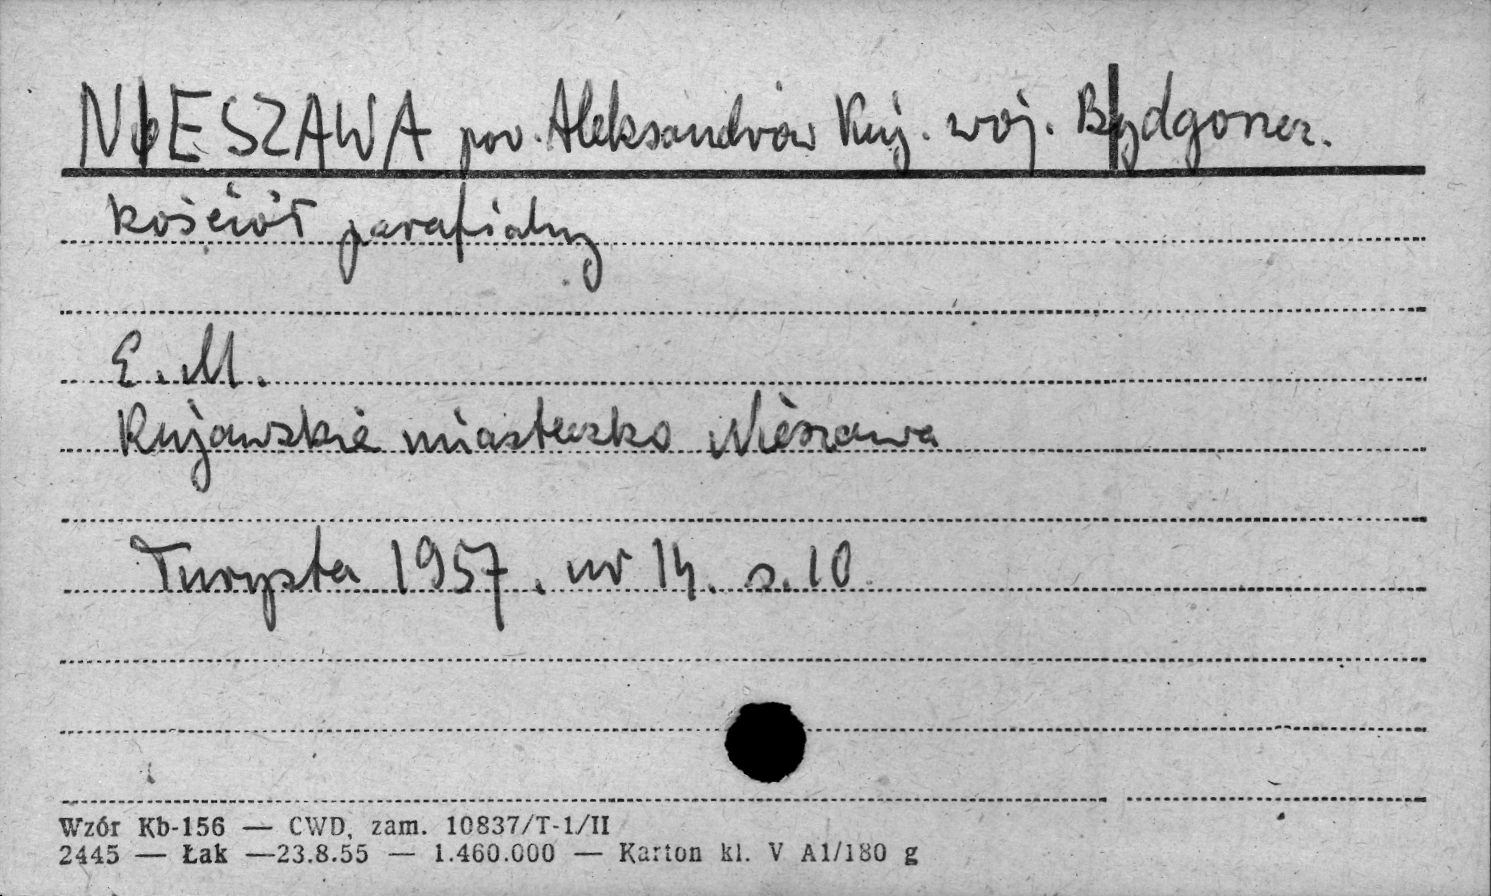 NIESZAWA pow. Aleksandrów Kuj. woj. Bydgoszcz.
kościół parafialny
E. M.
Kujawskie miasteczko Nieszawa
Turysta 1957. nr 14. s. 10.
Wzór Kb-156 — CWD, zam. 10837/T-1/II
2445 — Łak —23.8.55 — 1.460.000 — Karton kl. V A1/180 g